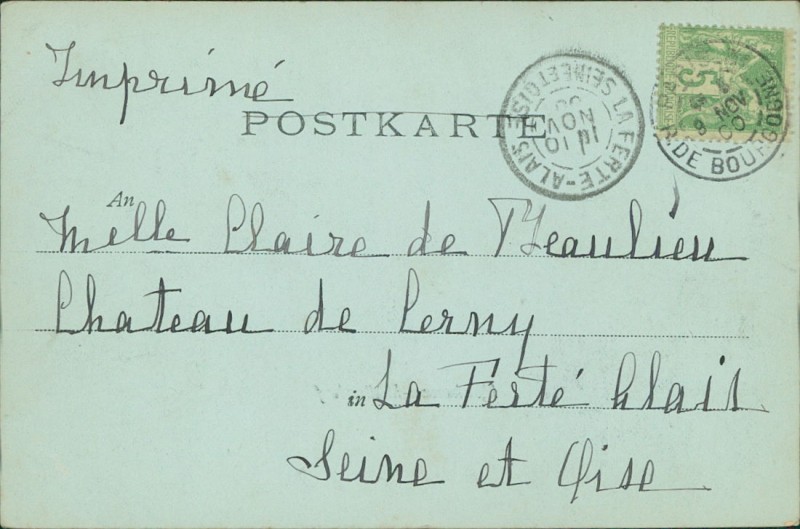 Imprimé
POSTKARTE
LA FERTE-ALAIS SEINE ET OISE
10 NOV 00
5
R. DE BOURGOGNE
9 NOV 00
An Melle Claire de Beaulieu
Chateau de Cerny
in La Ferté Alais
Seine et Oise